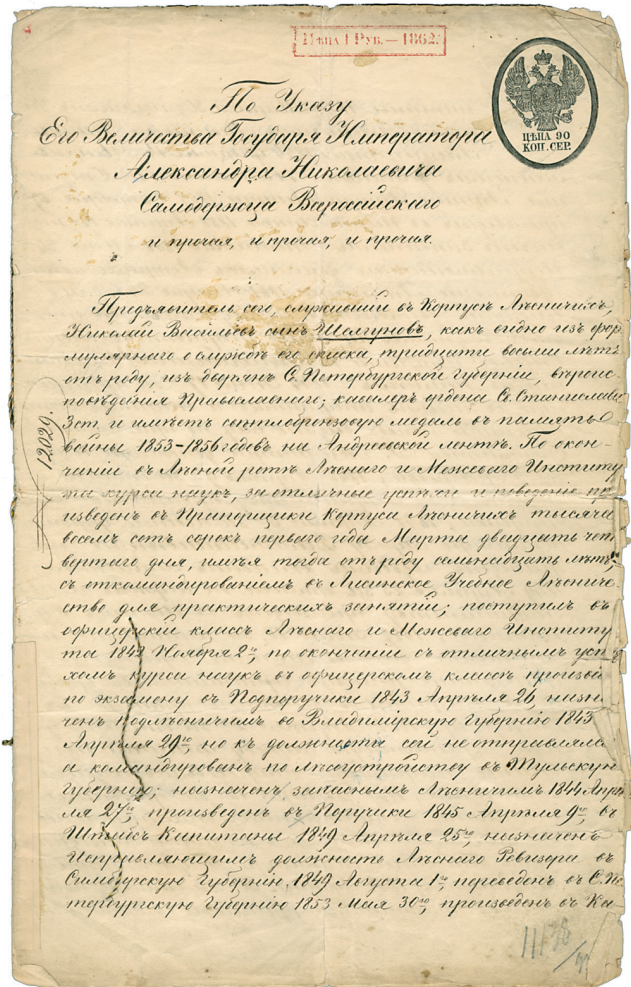 Цѣна 1 Руб. — 1862.
ЦѢНА 90
КОП. СЕР.
По Указу
Его Величества Государя Императора
Александра Николаевича
Самодержца Всероссійскаго
и прочая, и прочая, и прочая.
Предъявитель сего, служившій въ Корпусѣ Лѣсничихъ,
Николай Васильевъ сынъ Шелгуновъ, какъ видно изъ фор
мулярнаго о службѣ его списка, тридцати восьми лѣтъ
отъ роду, изъ дворянъ С. Петербургской Губерніи, вѣроис
повѣданія Православнаго; кавалеръ ордена Св. Станислава
3 ст. и имѣетъ свѣтлобронзовую медаль въ память
войны 1853-1856 годовъ на Андреевской лентѣ. По окон-
чаніи въ Лѣсной ротѣ Лѣснаго и Межеваго Институ
та курса наукъ, за отличные успѣхи и поведеніе про
изведенъ въ Прапорщики Корпуса Лѣсничихъ тысяча
восемь сотъ сорокъ перваго года Марта двадцать чет
вертаго дня, имѣя тогда отъ роду семьнадцать лѣтъ,
съ откомандированіемъ въ Лисинское Учебное Лѣсниче-
ство для практическихъ занятій; поступилъ въ
офицерскій классъ Лѣснаго и Межеваго Институ
та 1842 Ноября 2го, по окончаніи съ отличнымъ успѣ
хомъ курса наукъ въ офицерскомъ классѣ произве
по экзамену въ Подпоручики 1843 Апрѣля 26 назна
ченъ подлѣсничимъ во Владимірскую Губернію 1843
Апрѣля 29го, но къ должности сей не отправлялся
а командированъ по лѣсоустройству въ Тульскую
Губернію; назначенъ запаснымъ Лѣсничимъ 1844 Апрѣ
ля 27го, произведенъ въ Поручики 1845 Апрѣля 9го, въ
Штабсъ Капитаны 1849 Апрѣля 25го, назначенъ
Исправляющимъ должность Лѣснаго Ревизора въ
Симбирскую Губернію 1849 Августа 1го, переведенъ въ С. Пе
тербургскую Губернію 1853 Мая 30го, произведенъ въ Ка
12029.